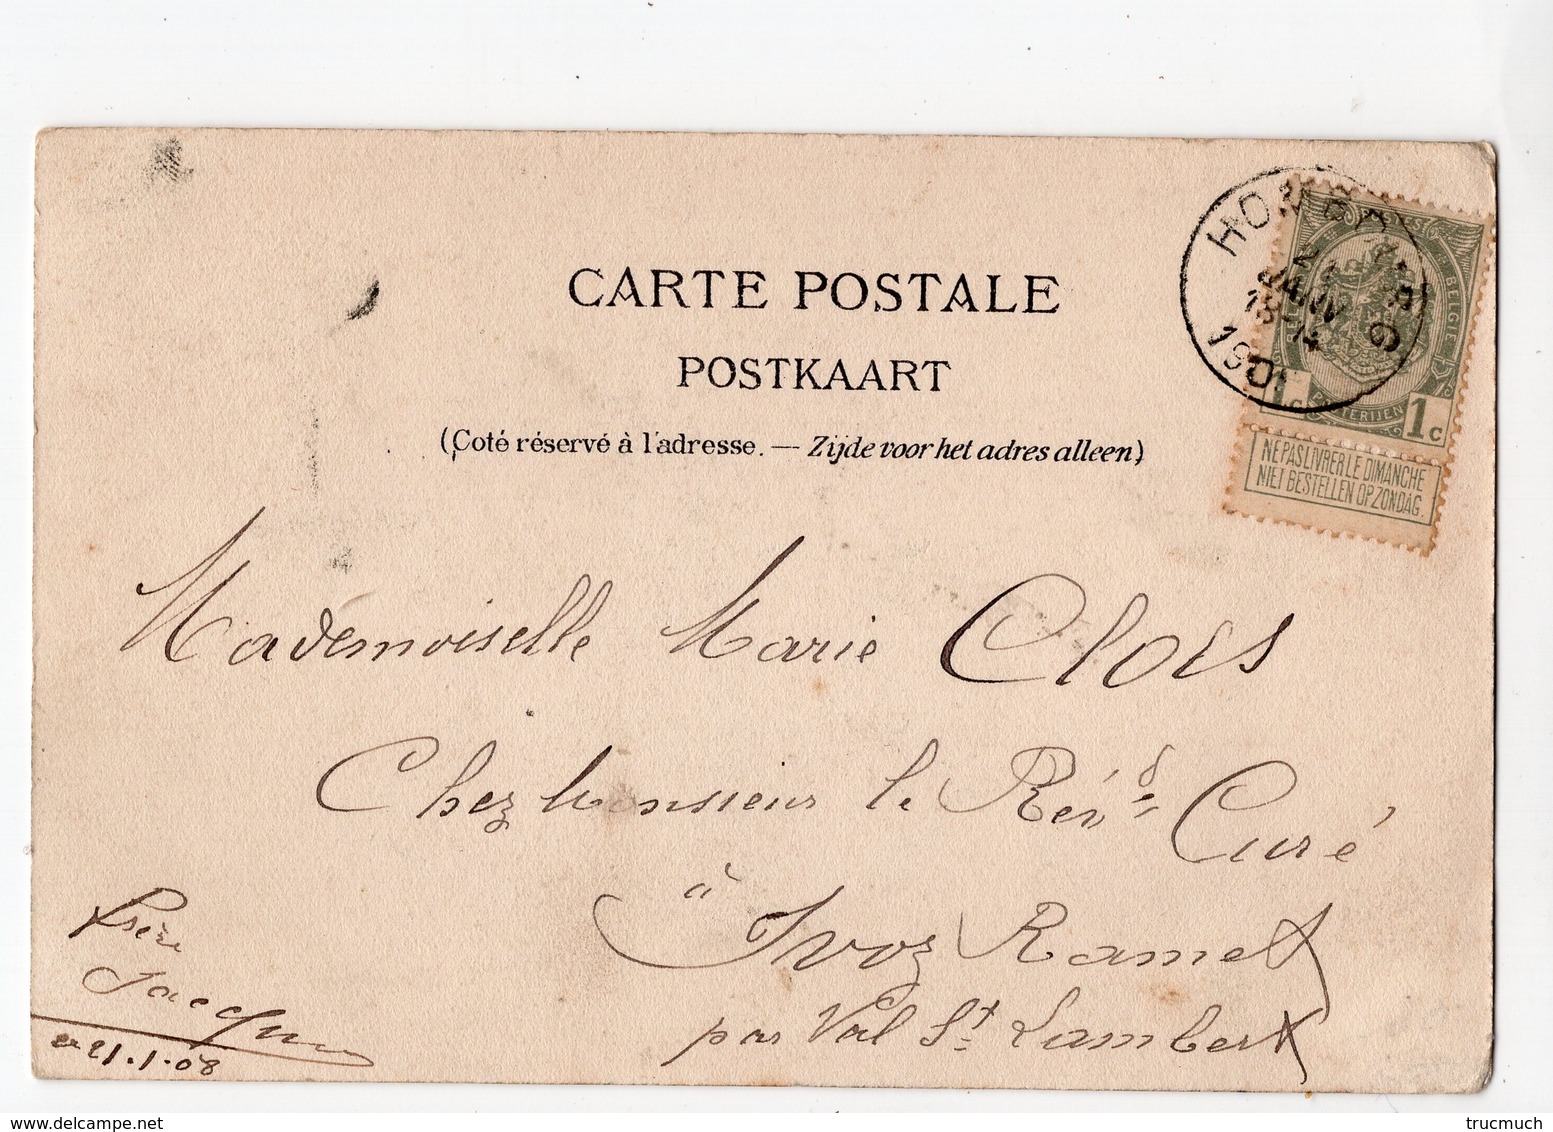 CARTE POSTALE
POSTKAART
(Coté réservé à l'adresse. — Zijde voor het adres alleen)
HOMBOURG
21
JANV
13-14
190
BELGIE
POSTERIJEN
1c
1c
NE PAS LIVRER LE DIMANCHE
NIET BESTELLEN OP ZONDAG.
Mademoiselle Marie Cloes
Chez Monsieur le Rév.d Curé
à Ivoz Ramet
par Val St. Lambert
frère
Jacques
21.1.08
trucmuch